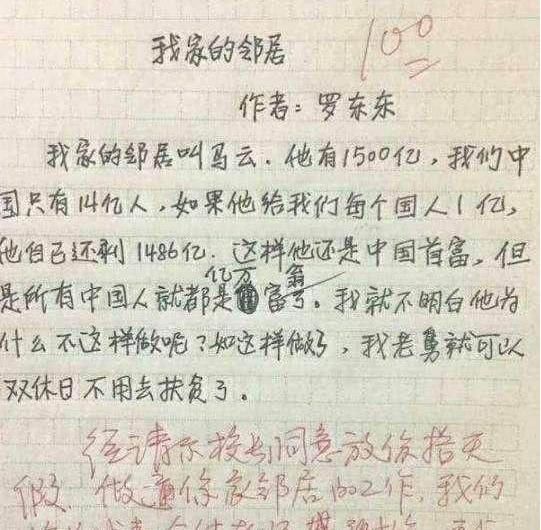 我家的邻居
100
作者：罗东东
我家的邻居叫马云．他有1500亿，我们中
国只有14亿人，如果他给我们每个国人1亿，
他自己还剩1486亿．这样他还是中国首富，但
是所有中国人就都是亿万富翁了。我就不明白他为
什么不这样做呢？如这样做了，我老舅就可以
双休日不用去扶贫了。
经请示校长同意放你搭天
假．做通你家邻居的工作，我们